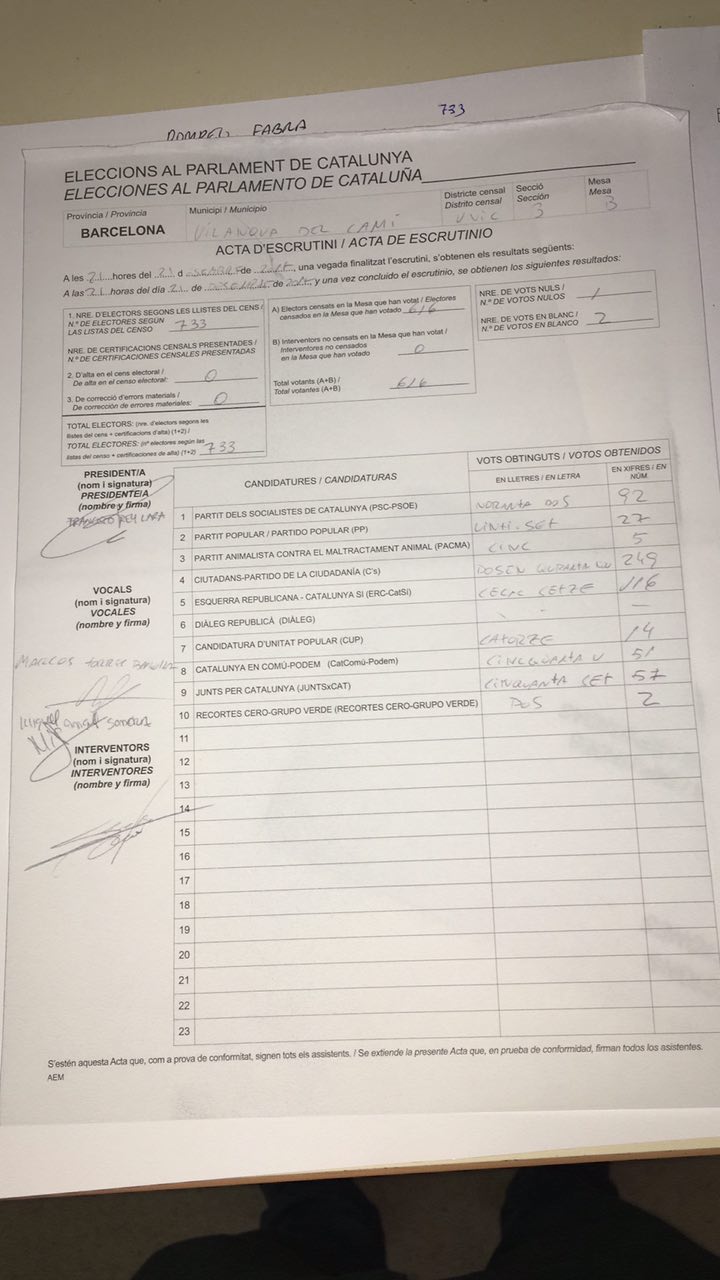 POMPEU FABRA
733
ELECCIONS AL PARLAMENT DE CATALUNYA
ELECCIONES AL PARLAMENTO DE CATALUÑA
Província / Provincia
BARCELONA
Municipi / Municipio
VILANOVA DEL CAMÍ
Districte censal
Distrito censal
UNIC
Secció
Sección
3
Mesa
Mesa
B
ACTA D'ESCRUTINI / ACTA DE ESCRUTINIO
A les 21 hores del 21 d de , una vegada finalitzat l'escrutini, s'obtenen els resultats següents:
A las 21 horas del día 21 de de y una vez concluido el escrutinio, se obtienen los siguientes resultados:
1. NRE. D'ELECTORS SEGONS LES LLISTES DEL CENS /
N.º DE ELECTORES SEGÚN
LAS LLISTAS DEL CENSO 733
NRE. DE CERTIFICACIONS CENSALS PRESENTADES /
N.º DE CERTIFICACIONES CENSALES PRESENTADAS
2. D'alta en el cens electoral /
De alta en el censo electoral: 0
3. De correcció d'errors materials /
De corrección de errores materiales: 0
TOTAL ELECTORS: (nre. d'electors segons les
llistes del cens + certificacions d'alta) (1+2) /
TOTAL ELECTORES: (nº electores según las
listas del censo + certificaciones de alta) (1+2) 733
A) Electors censats en la Mesa que han votat / Electores
censados en la Mesa que han votado 616
B) Interventors no censats en la Mesa que han votat /
Interventores no censados
en la Mesa que han votado 0
Total votants (A+B) /
Total votantes (A+B) 616
NRE. DE VOTS NULS /
N.º DE VOTOS NULOS 1
NRE. DE VOTS EN BLANC /
N.º DE VOTOS EN BLANCO 2
PRESIDENT/A
(nom i signatura)
PRESIDENTE/A
(nombre y firma)
REY LARA
VOCALS
(nom i signatura)
VOCALES
(nombre y firma)
MARCOS
INTERVENTORS
(nom i signatura)
INTERVENTORES
(nombre y firma)
CANDIDATURES / CANDIDATURAS
VOTS OBTINGUTS / VOTOS OBTENIDOS
EN LLETRES / EN LETRA
EN XIFRES / EN NÚM.
1 PARTIT DELS SOCIALISTES DE CATALUNYA (PSC-PSOE) NORANTA DOS 92
2 PARTIT POPULAR / PARTIDO POPULAR (PP) VINTI-SET 27
3 PARTIT ANIMALISTA CONTRA EL MALTRACTAMENT ANIMAL (PACMA) CINC 5
4 CIUTADANS-PARTIDO DE LA CIUDADANÍA (C's) 249
5 ESQUERRA REPUBLICANA - CATALUNYA SI (ERC-CatSí) 116
6 DIÀLEG REPUBLICÀ (DIÀLEG) - - —
7 CANDIDATURA D'UNITAT POPULAR (CUP) CATORZE 14
8 CATALUNYA EN COMÚ-PODEM (CatComú-Podem) CINCQUANTA U 51
9 JUNTS PER CATALUNYA (JUNTSxCAT) CINQUANTA CET 57
10 RECORTES CERO-GRUPO VERDE (RECORTES CERO-GRUPO VERDE) DOS 2
11
12
13
14
15
16
17
18
19
20
21
22
23
S'estén aquesta Acta que, com a prova de conformitat, signen tots els assistents. / Se extiende la presente Acta que, en prueba de conformidad, firman todos los asistentes.
AEM